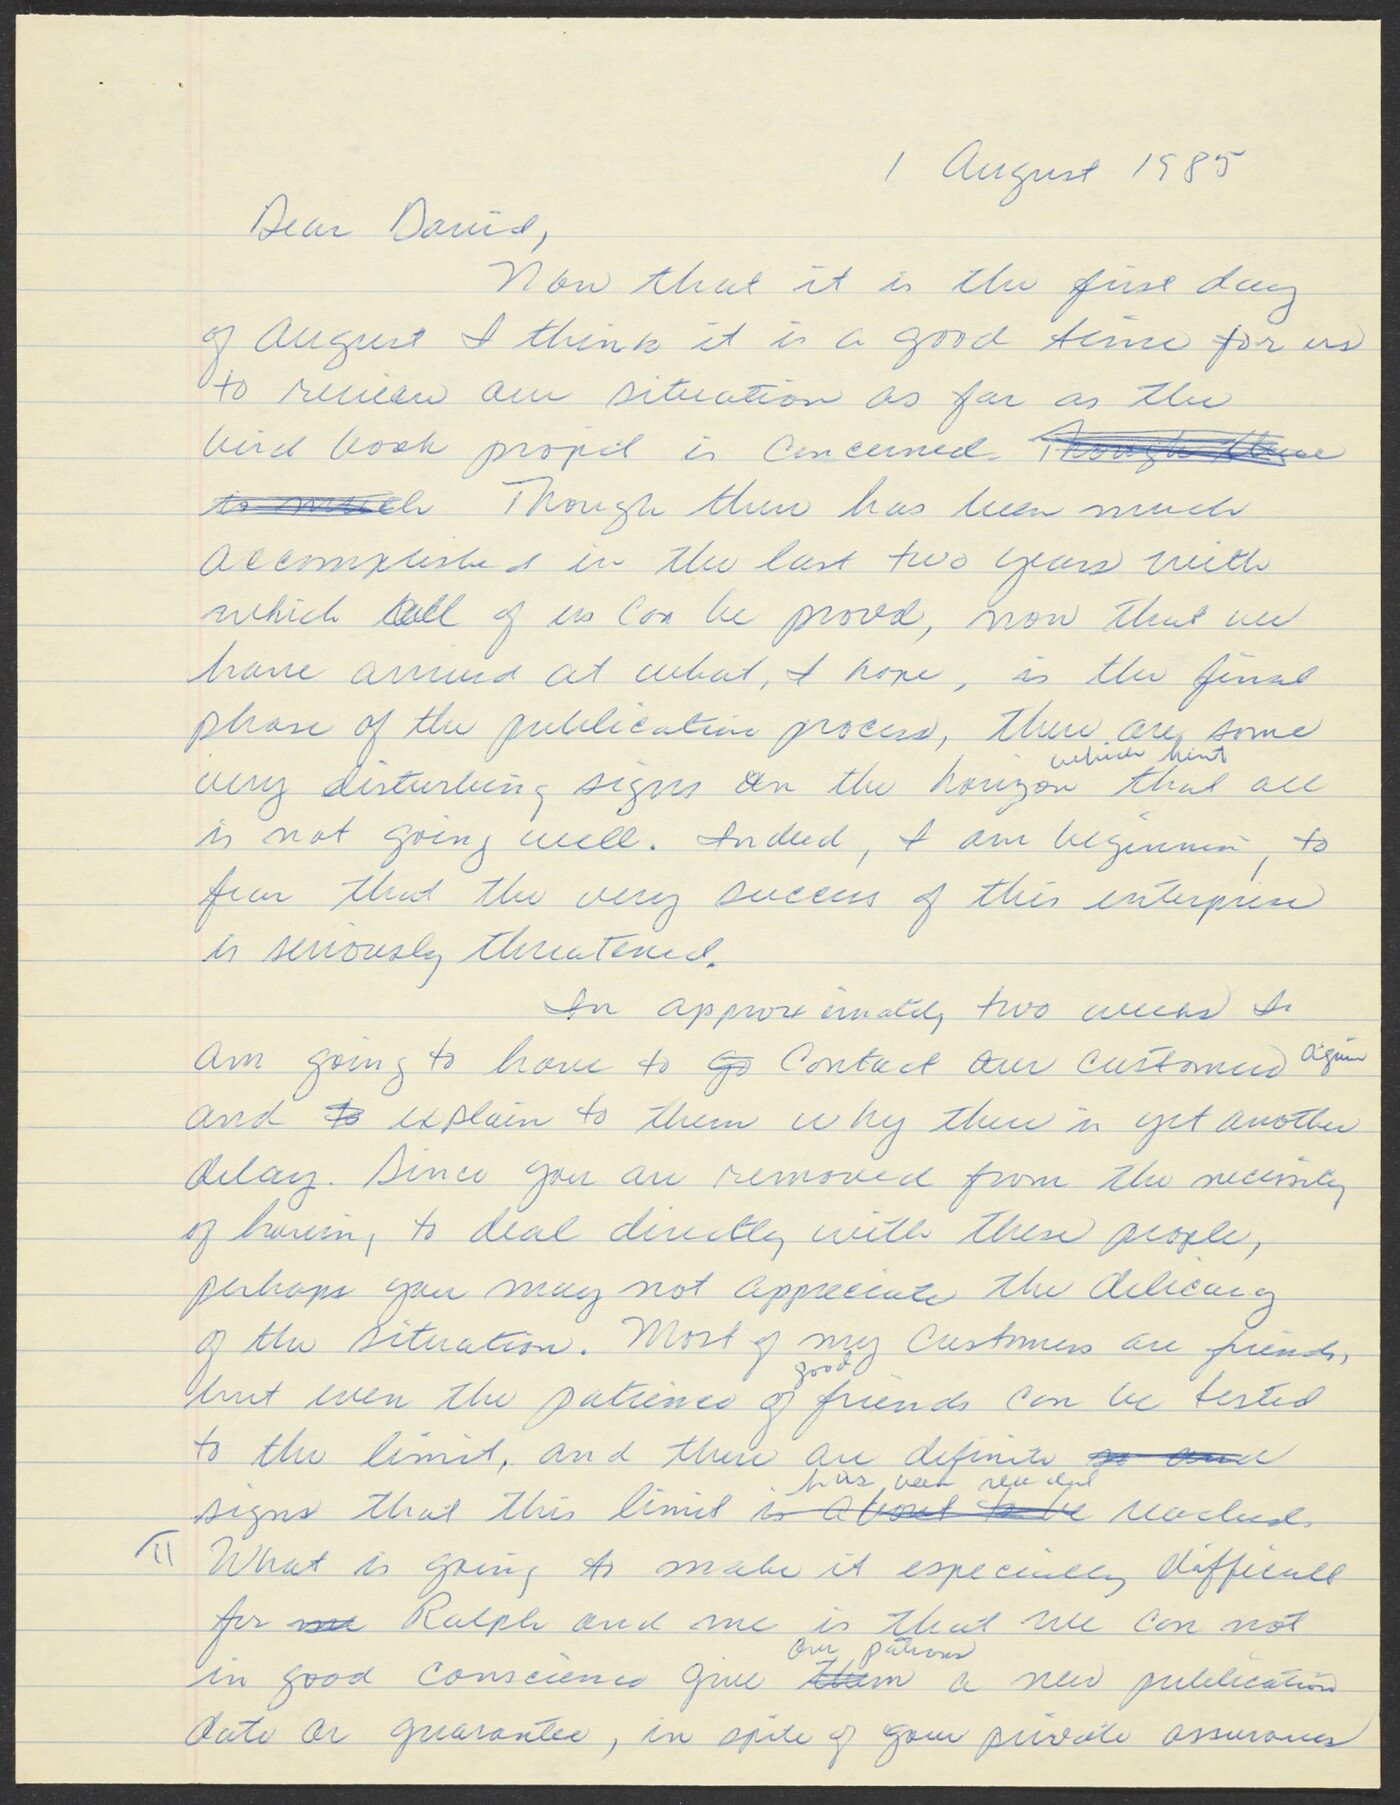 1 August 1985
Dear David,
Now that it is the first day
of August I think it is a good time for us
to review our situation as far as the
bird book project is concerned. Though there
is much Though there has been much
accomplished in the last two years with
which all of us can be proud, now that we
have arrived at what, I hope, is the final
phase of the publication process, there are some
which hint
very disturbing signs on the horizon that all
is not going well. Indeed, I am beginning to
fear that the very success of this enterprise
is seriously threatened.
In approximately two weeks I
am going to have to go contact our customers again
and to explain to them why there is yet another
delay. Since you are removed from the necessity
of having to deal directly with these people,
perhaps you may not appreciate the delicacy
of the situation. Most of my customers are friends,
good
but even the patience of friends can be tested
to the limit, and there are definite
has been reached
signs that this limit is about to be reached.
¶ What is going to make it especially difficult
for me Ralph and me is that we can not
our patrons
in good conscience give them a new publication
date or guarantee, in spite of your private assurances